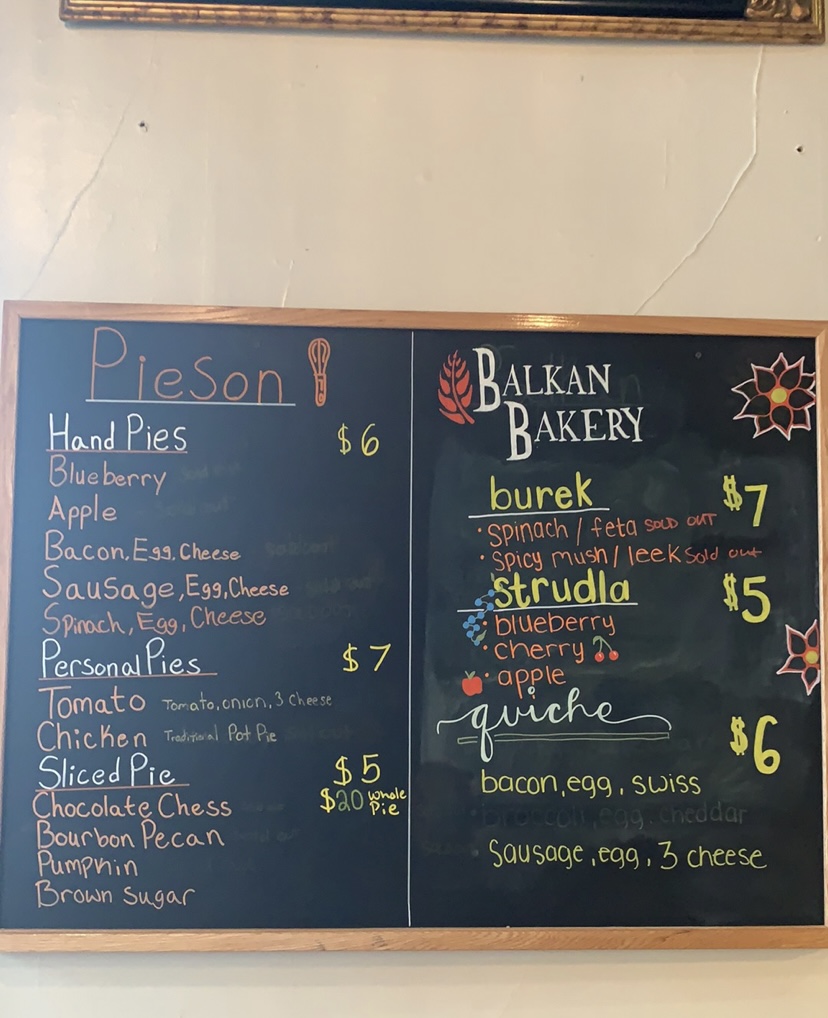 PieSon
Hand Pies $6
Blueberry
Apple
Bacon, Egg, Cheese
Sausage, Egg, Cheese
Spinach, Egg, Cheese
Personal Pies $7
Tomato Tomato, onion, 3 Cheese
Chicken Traditional Pot Pie
Sliced Pie $5
Chocolate Chess $20 whole Pie
Bourbon Pecan
Pumpkin
Brown Sugar
BALKAN
BAKERY
burek $7
• Spinach / feta SOLD OUT
• Spicy mush / leek Sold out
Strudla $5
• blueberry
• cherry
• apple
quiche $6
bacon, egg, swiss
• broccoli, egg, cheddar
• Sausage, egg, 3 cheese